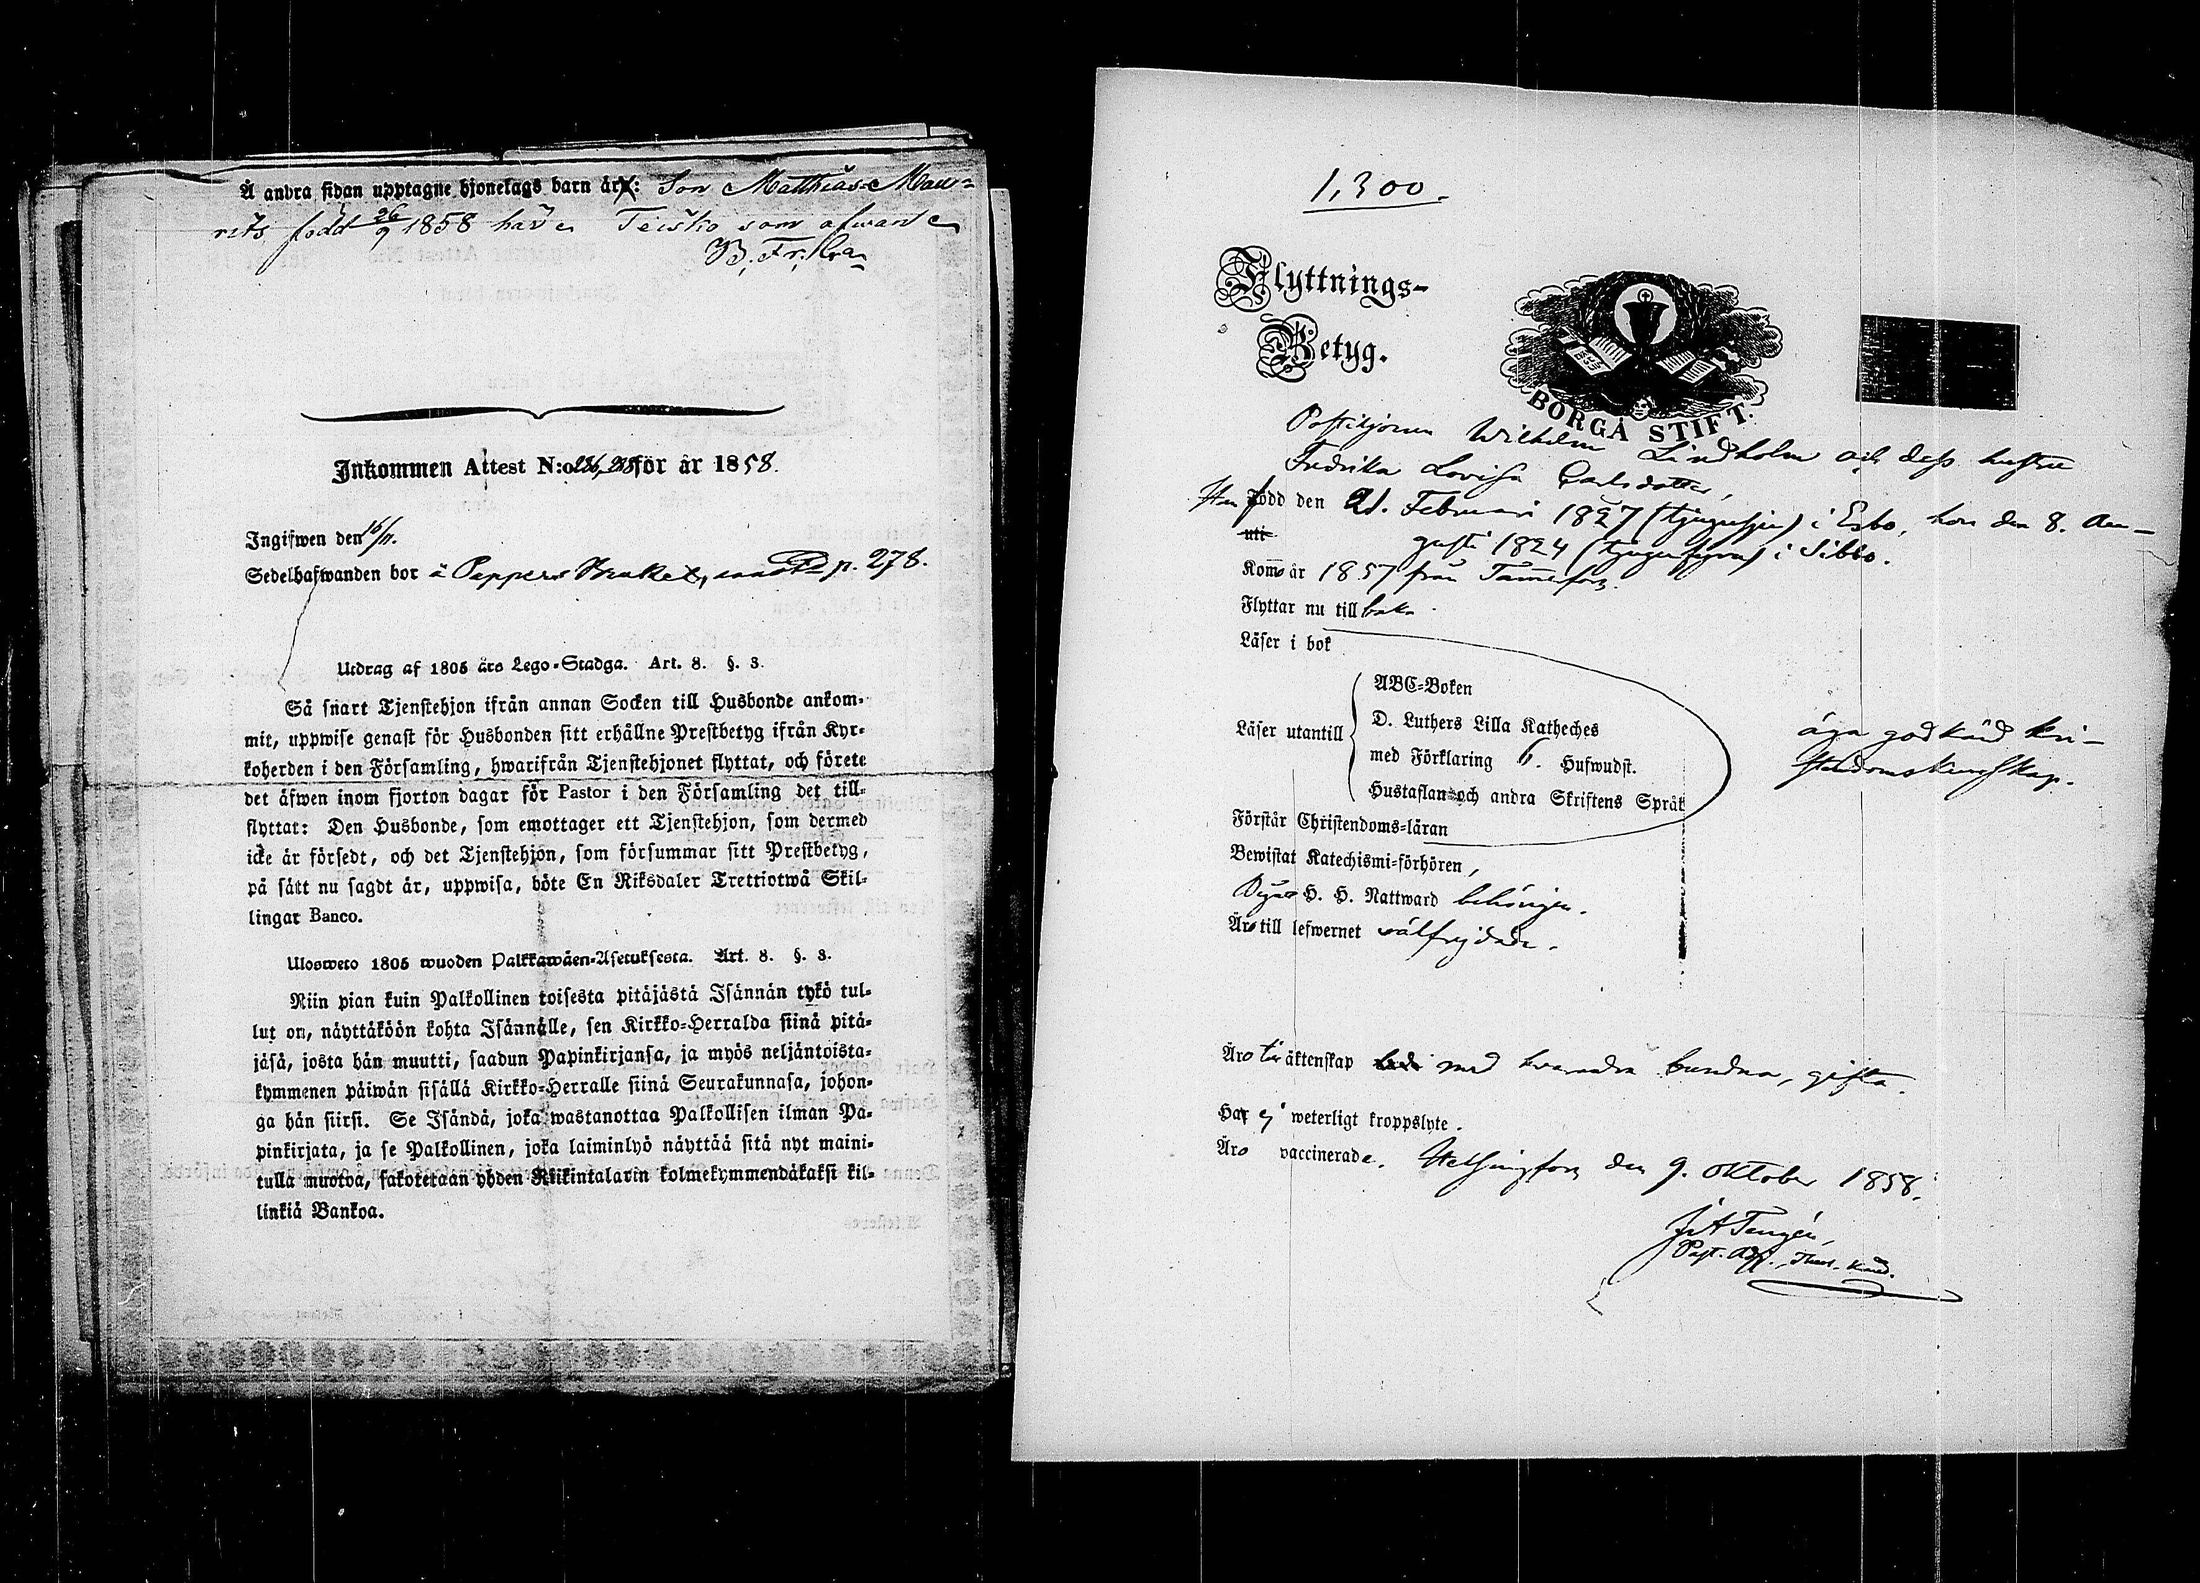 Å andra sidan upptagne hjonelags barn är: Son Matthias Mau-
rits född 26/9 1858 har i Teisko som ofwan
B. Fr.
Inkommen Attest N:o 236, för år 1858.
Ingifwen den 16/11.
Sedelhafwanden bor å Peppers p. 278.
Utdrag af 1805 års Lego-Stadga. Art. 8. §. 3.
Så snart Tjenstehjon ifrån annan Socken till Husbonde ankom-
mit, uppwise genast för Husbonden sitt erhållne Prestbetyg ifrån Kyr-
koherden i den Församling, hwarifrån Tjenstehjonet flyttat, och förete
det äfwen inom fjorton dagar för Pastor i den Församling det till-
flyttat: Den Husbonde, som emottager ett Tjenstehjon, som dermed
icke är försedt, och det Tjenstehjon, som försummar sitt Prestbetyg,
på sätt nu sagdt är, uppwisa, böte En Riksdaler Trettiotwå Skil-
lingar Banco.
Ulosweto 1805 wuoden Palkkawäen-Asetuksesta. Art. 8. §. 3.
Niin pian kuin Palkollinen toisesta pitäjästä Isännän tykö tul-
lut on, näyttäköön kohta Isännälle, sen Kirkko-Herralda siinä pitä-
jäsä, josta hän muutti, saadun Papinkirjansa, ja myös neljäntoista-
kymmenen päiwän sisällä Kirkko-Herralle siinä Seurakunnasa, johon-
ga hän siirsi. Se Isändä, joka wastanottaa Palkollisen ilman Pa-
pinkirjata, ja se Palkollinen, joka laiminlyö näyttää sitä nyt maini-
tulla muotoa, sakotetaan yhden Riikintalarin kolmekymmendäkaksi kil-
linkiä Bankoa.
1,300.
Flyttnings-
Betyg.
BORGÅ STIFT.
Postiljonen Wilhelm Lindholm och dess hustru
Fredrika Lovisa Carlsdotter,
Han född den 21. Februari 1827 (tjugusju) i Esbo, hon den 8. Au-
uti gusti 1824 (tjugufyra) i Sibbo.
Kommo år 1857 från Tammerfors.
Flyttar nu tillbaka.
Läser i bok
Läser utantill
ABC-Boken
D. Luthers Lilla Katheches
med Förklaring 6. Hufwudst.
Hustaflan och andra Skriftens Språk
äga godkänd kri-
stendomskunskap.
Förstår Christendoms-läran
Bewistat Katechismi-förhören,
Begått H. H. Nattward behörigen.
Äro till lefwernet välfrejdade.
Äro till äktenskap med hvarandra bundna, gifta.
Har ej weterligt kroppslyte.
Äro vaccinerade. Helsingfors den 9. oktober 1858.
Past. Adj., Theol. Kand.